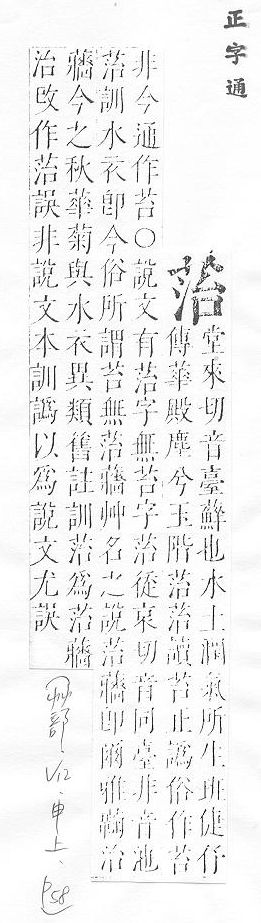 正字通
菭
堂來切音臺蘚也水土潤氣所生班倢伃
傳華殿塵兮玉階菭菭讀苔正譌俗作苔
非今通作苔○說文有菭字無苔字菭徒哀切音同臺非音池
菭訓水衣卽今俗所謂苔無菭蘠艸名之說菭蘠卽爾雅蘜治
蘠今之秋華菊與水衣異類舊註訓菭爲菭蘠
治改作菭誤非說文本訓譌以爲說文尤誤
艸部、V12、申上、p58